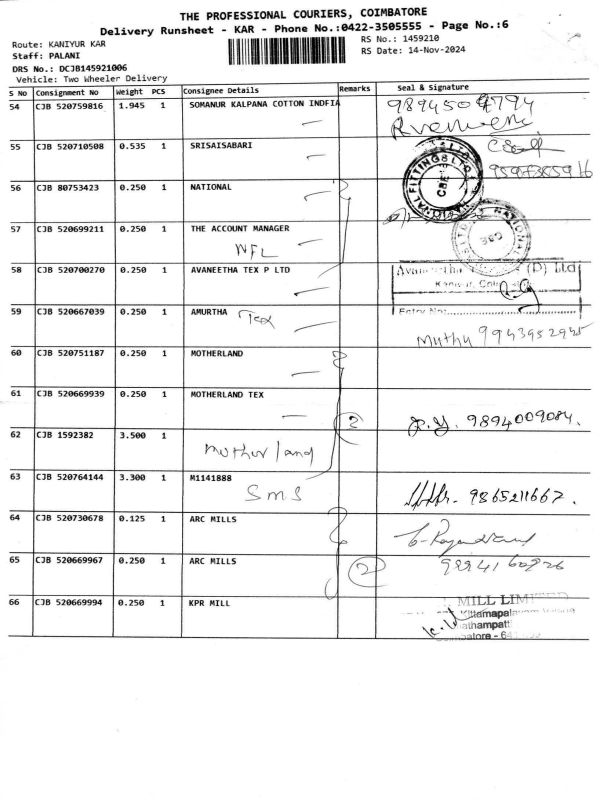 THE PROFESSIONAL COURIERS, COIMBATORE
Delivery Runsheet - KAR - Phone No.:0422-3505555 - Page No.:6
Route: KANIYUR KAR
RS No.: 1459210
Staff: PALANI
RS Date: 14-Nov-2024
DRS No.: DCJB145921006
Vehicle: Two Wheeler Delivery
S No Consignment No Weight PCS Consignee Details Remarks Seal & Signature
54 CJB 520759816 1.945 1 SOMANUR KALPANA COTTON INDFIA
55 CJB 520710508 0.535 1 SRISAISABARI
56 CJB 80753423 0.250 1 NATIONAL
57 CJB 520699211 0.250 1 THE ACCOUNT MANAGER
NFL
58 CJB 520700270 0.250 1 AVANEETHA TEX P LTD
Avaneetha (P) Ltd
Entry No:
59 CJB 520667039 0.250 1 AMURTHA Tex
Muthu 9943952945
60 CJB 520751187 0.250 1 MOTHERLAND
61 CJB 520669939 0.250 1 MOTHERLAND TEX
2 9894009084.
62 CJB 1592382 3.500 1
Motherland
63 CJB 520764144 3.300 1 M1141888
SMS 9865211667.
64 CJB 520730678 0.125 1 ARC MILLS
65 CJB 520669967 0.250 1 ARC MILLS
2
66 CJB 520669994 0.250 1 KPR MILL
MILL LIMITED